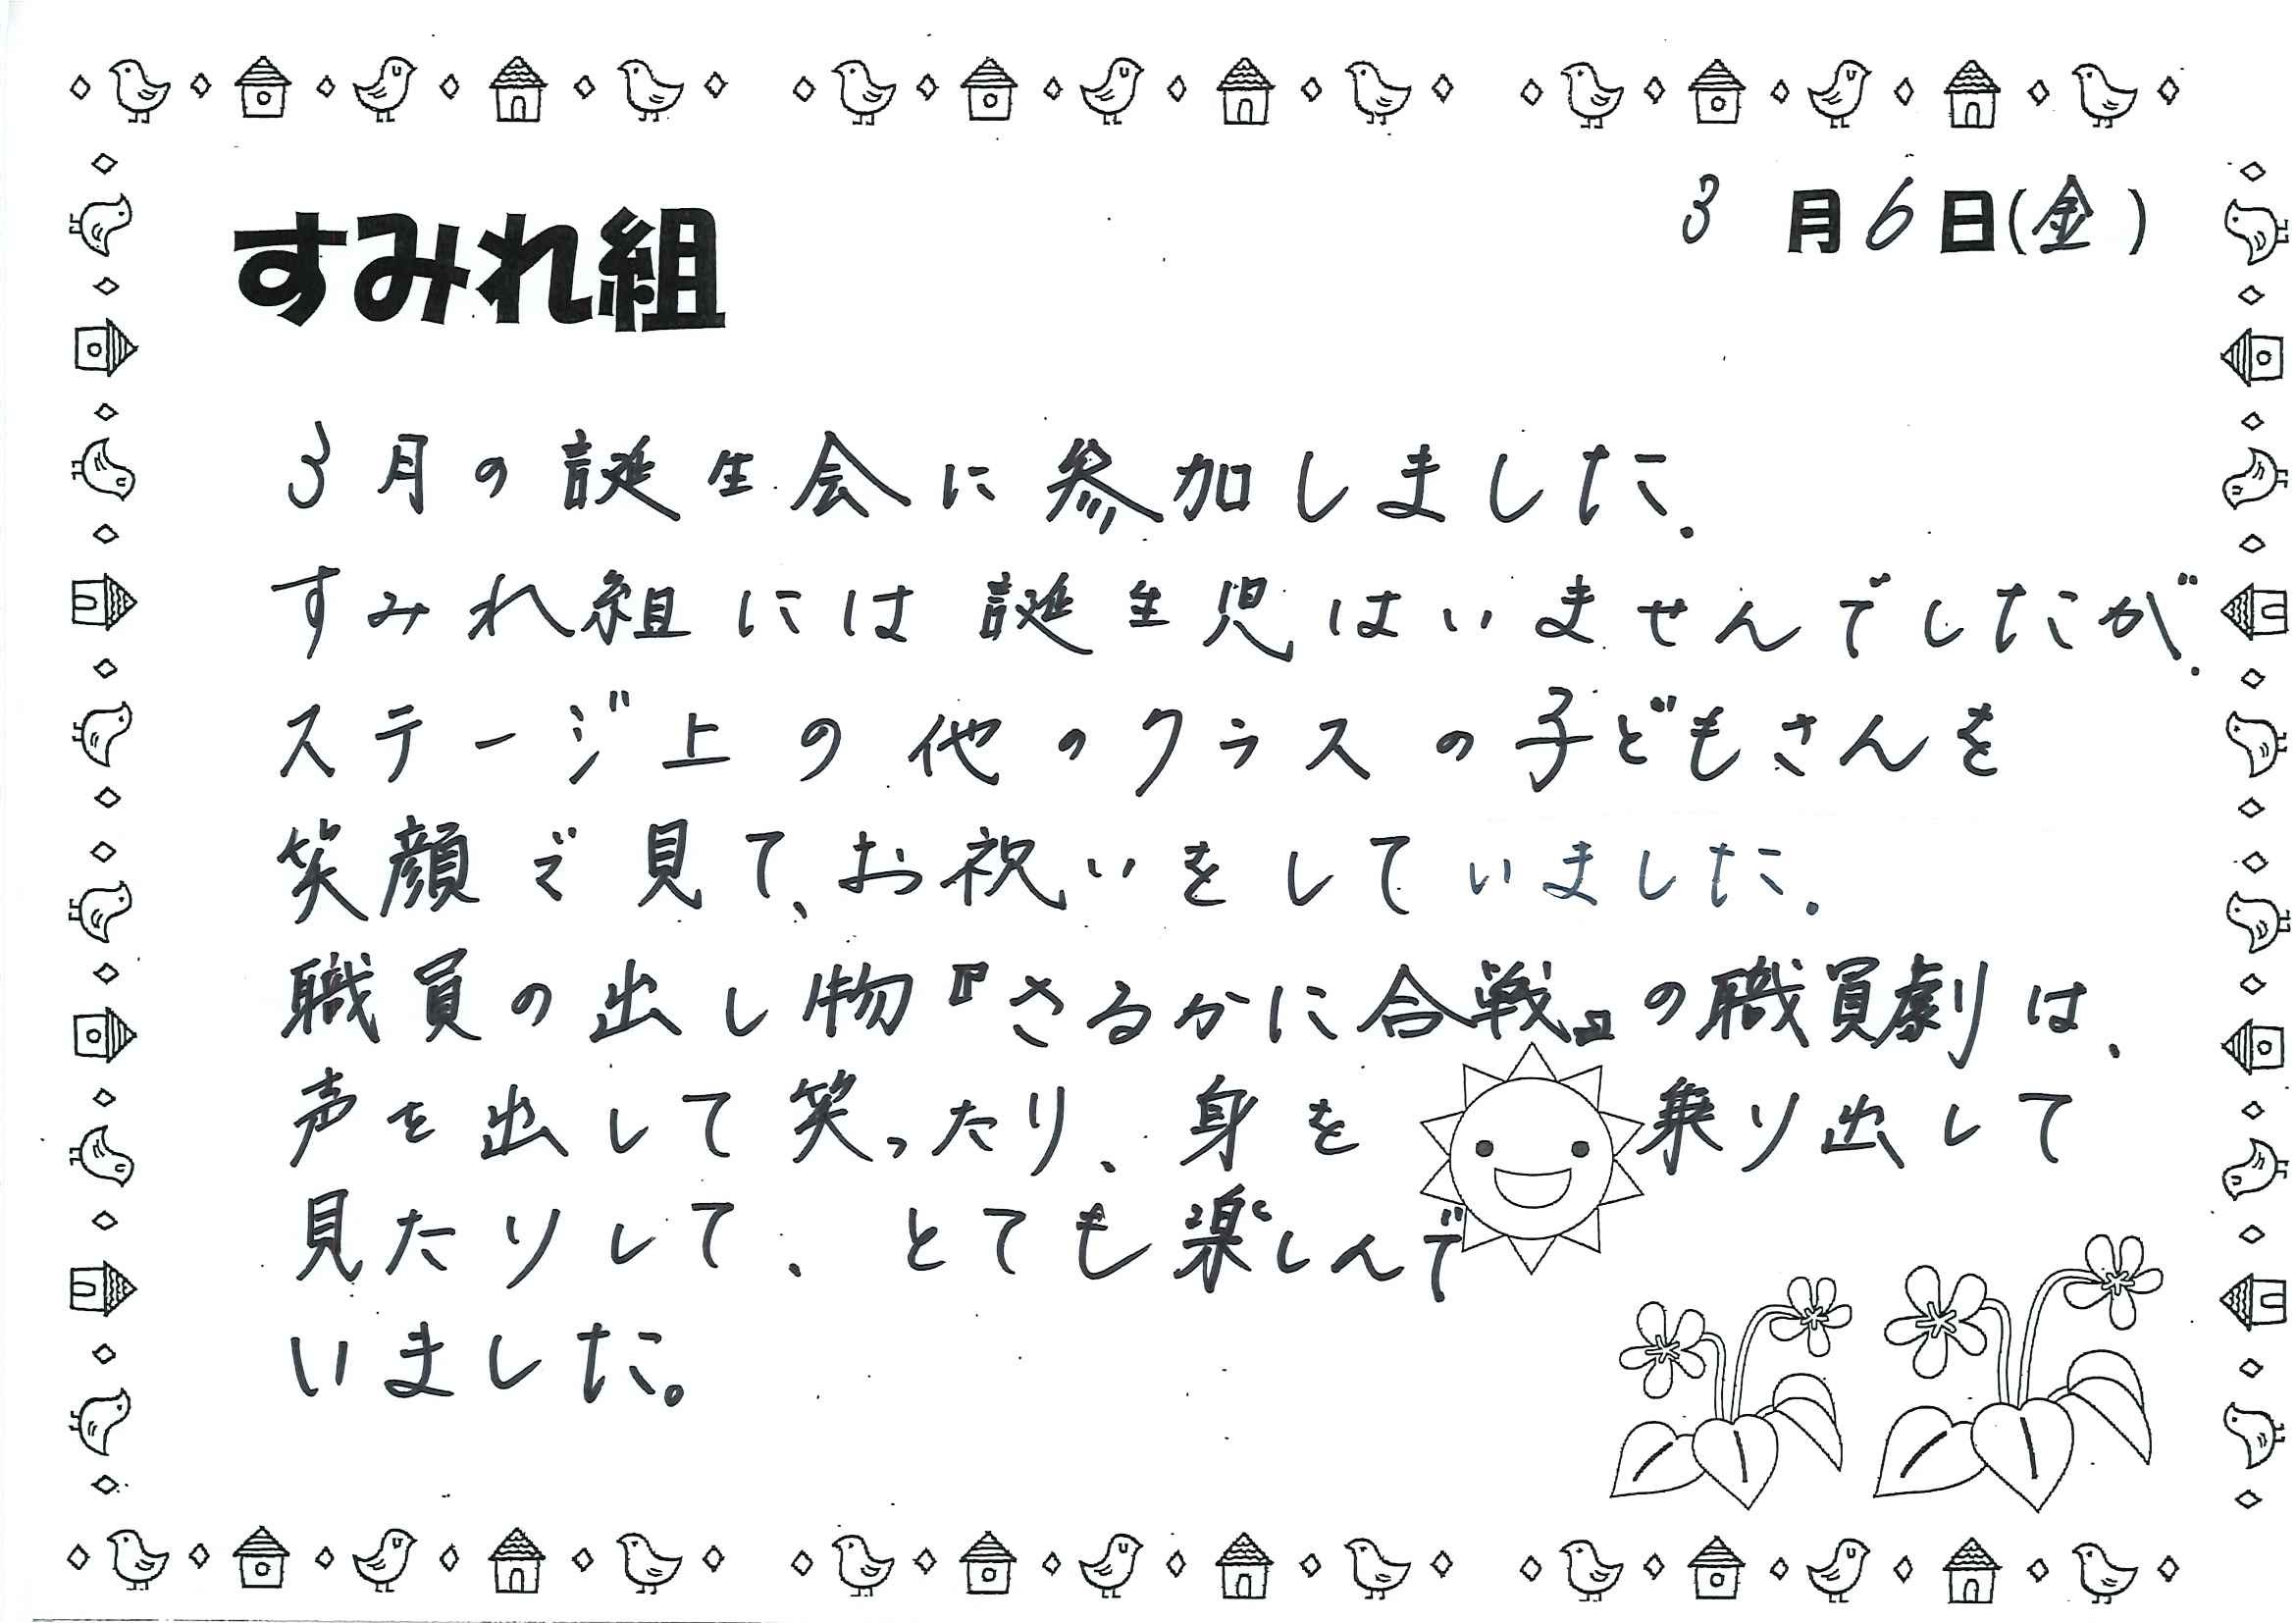 3月6日(金)
すみれ組
3月の誕生会に参加しました.
すみれ組には誕生児はいませんでしたが.
ステージ上の他のクラスの子どもさんを
笑顔で見て、お祝いをしていました.
職員の出し物『さるかに合戦』の職員劇は、
声を出して笑ったり、身を乗り出して
見たりして、とても楽しんで
いました。